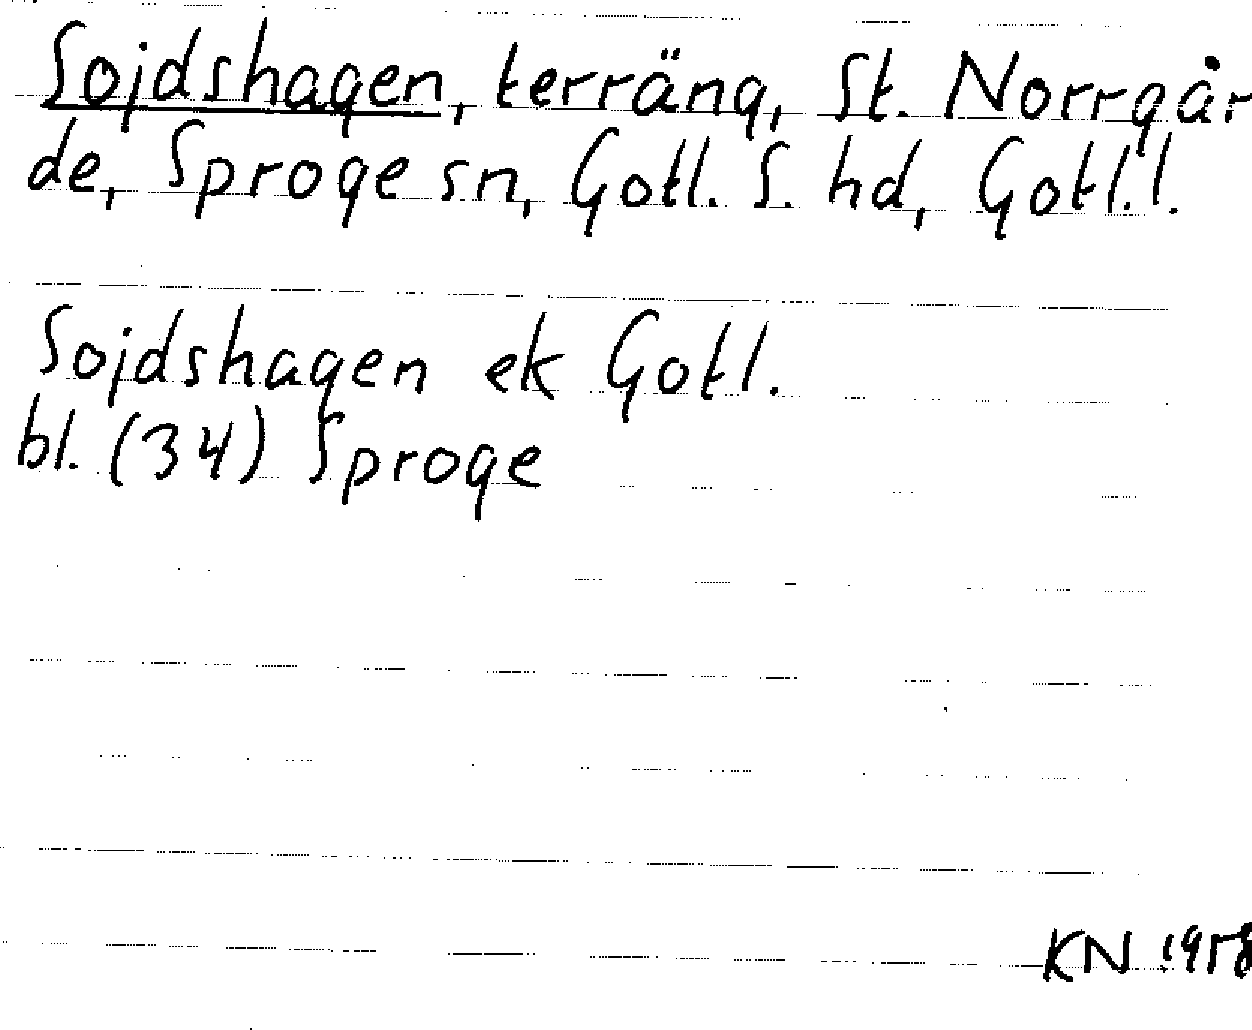 Sojdshagen, terräng, St. Norrgår
de, Sproge sn, Gotl. S. hd, Gotl. l.
Sojdshagen ek Gotl.
bl. (34) Sproge
KN 1958